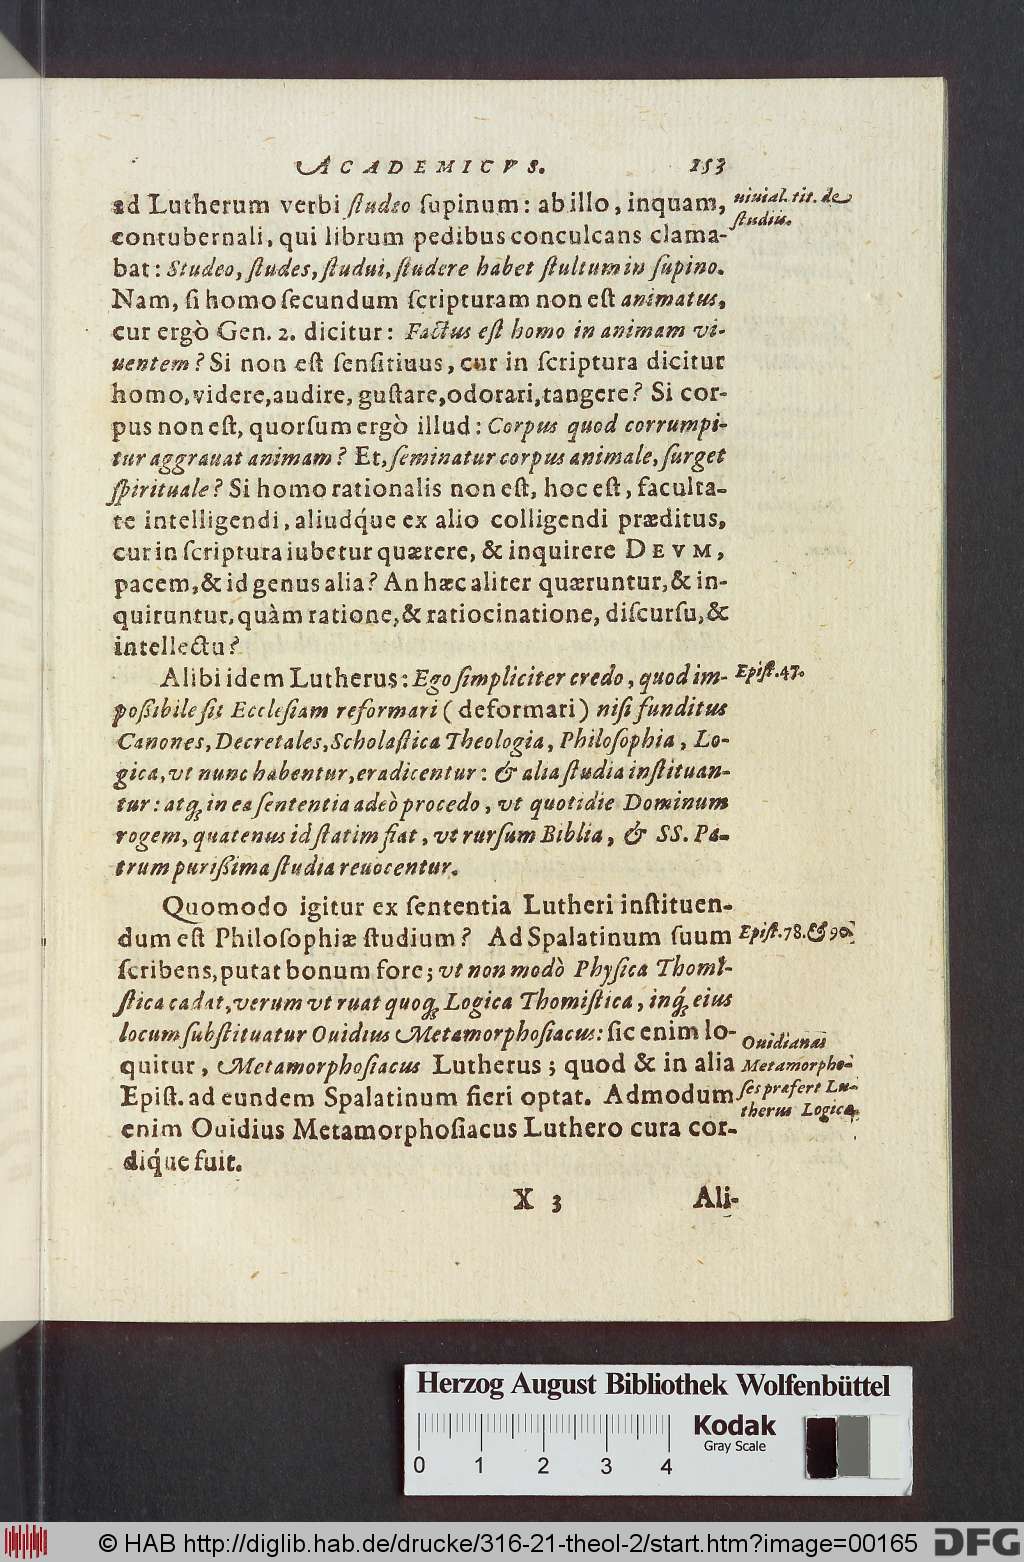 ACADEMICVS. 153
ad Lutherum verbi ſtudeo ſupinum: ab illo, inquam,
uiuial. tit. de
ſtudiis.
contubernali, qui librum pedibus conculcans clama-
bat: Studeo, ſtudes, ſtudui, ſtudere habet ſtultum in ſupino.
Nam, ſi homo ſecundum ſcripturam non eſt animatus,
cur ergò Gen. 2. dicitur: Factus eſt homo in animam vi-
uentem? Si non eſt ſenſitiuus, cur in ſcriptura dicitur
homo, videre, audire, guſtare, odorari, tangere? Si cor-
pus non eſt, quorſum ergò illud: Corpus quod corrumpi-
tur aggrauat animam? Et, ſeminatur corpus animale, ſurget
ſpirituale? Si homo rationalis non eſt, hoc eſt, faculta-
te intelligendi, aliudq́ue ex alio colligendi præditus,
cur in ſcriptura iubetur quærere, & inquirere DEVM,
pacem, & id genus alia? An hæc aliter quæruntur, & in-
quiruntur, quàm ratione, & ratiocinatione, diſcurſu, &
intellectu?
Alibi idem Lutherus: Ego ſimpliciter credo, quod im-
Epiſt. 47.
poßibile ſit Eccleſiam reformari (deformari) niſi funditus
Canones, Decretales, Scholaſtica Theologia, Philoſophia, Lo-
gica, vt nunc habentur, eradicentur: & alia ſtudia inſtituan-
tur: atq; in ea ſententia adeò procedo, vt quotidie Dominum
rogem, quatenus id ſtatim fiat, vt rurſum Biblia, & SS. Pa-
trum purißima ſtudia reuocentur.
Quomodo igitur ex ſententia Lutheri inſtituen-
dum eſt Philoſophiæ ſtudium? Ad Spalatinum ſuum
Epiſt. 78. & 90.
ſcribens, putat bonum fore; vt non modò Phyſica Thomi-
ſtica cadat, verum vt ruat quoq; Logica Thomiſtica, inq́; eius
locum ſubſtituatur Ouidius Metamorphoſiacus: ſic enim lo-
quitur, Metamorphoſiacus Lutherus; quod & in alia
Epiſt. ad eundem Spalatinum fieri optat. Admodum
enim Ouidius Metamorphoſiacus Luthero cura cor-
diq́ue fuit.
Ouidianas
Metamorpho-
ſes præfert Lu-
therus Logicæ.
X 3 Ali-
Herzog August Bibliothek Wolfenbüttel
Kodak
Gray Scale
0 1 2 3 4
© HAB http://diglib.hab.de/drucke/316-21-theol-2/start.htm?image=00165 DFG